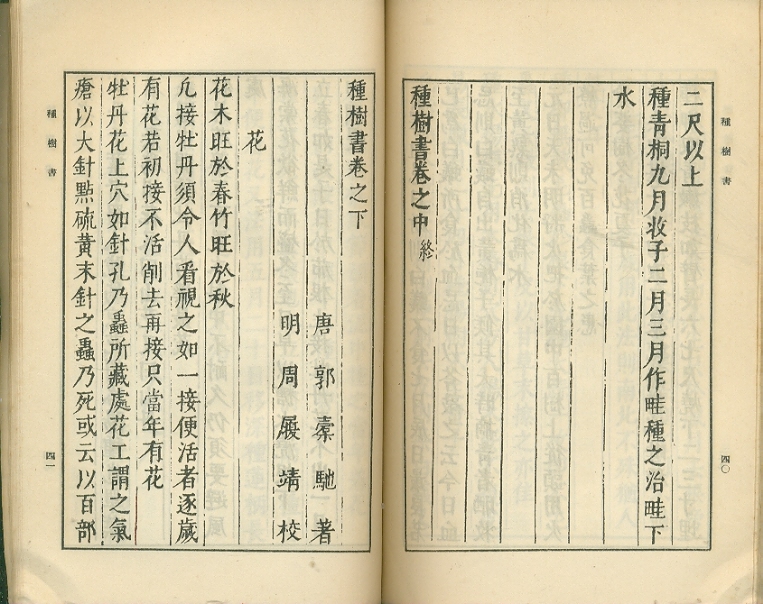 種樹書
二尺以上
種青桐九月收子二月三月作畦種之治畦下
水
種樹書卷之中 終
四〇
種樹書卷之下
唐郭橐馳著
明周履靖校
花
花木旺於春竹旺於秋
凡接牡丹須令人看視之如一接便活者逐歲
有花若初接不活削去再接只當年有花
牡丹花上穴如針孔乃蟲所藏處花工謂之氣
瘡以大針點硫黃末針之蟲乃死或云以百部
種樹書
四一